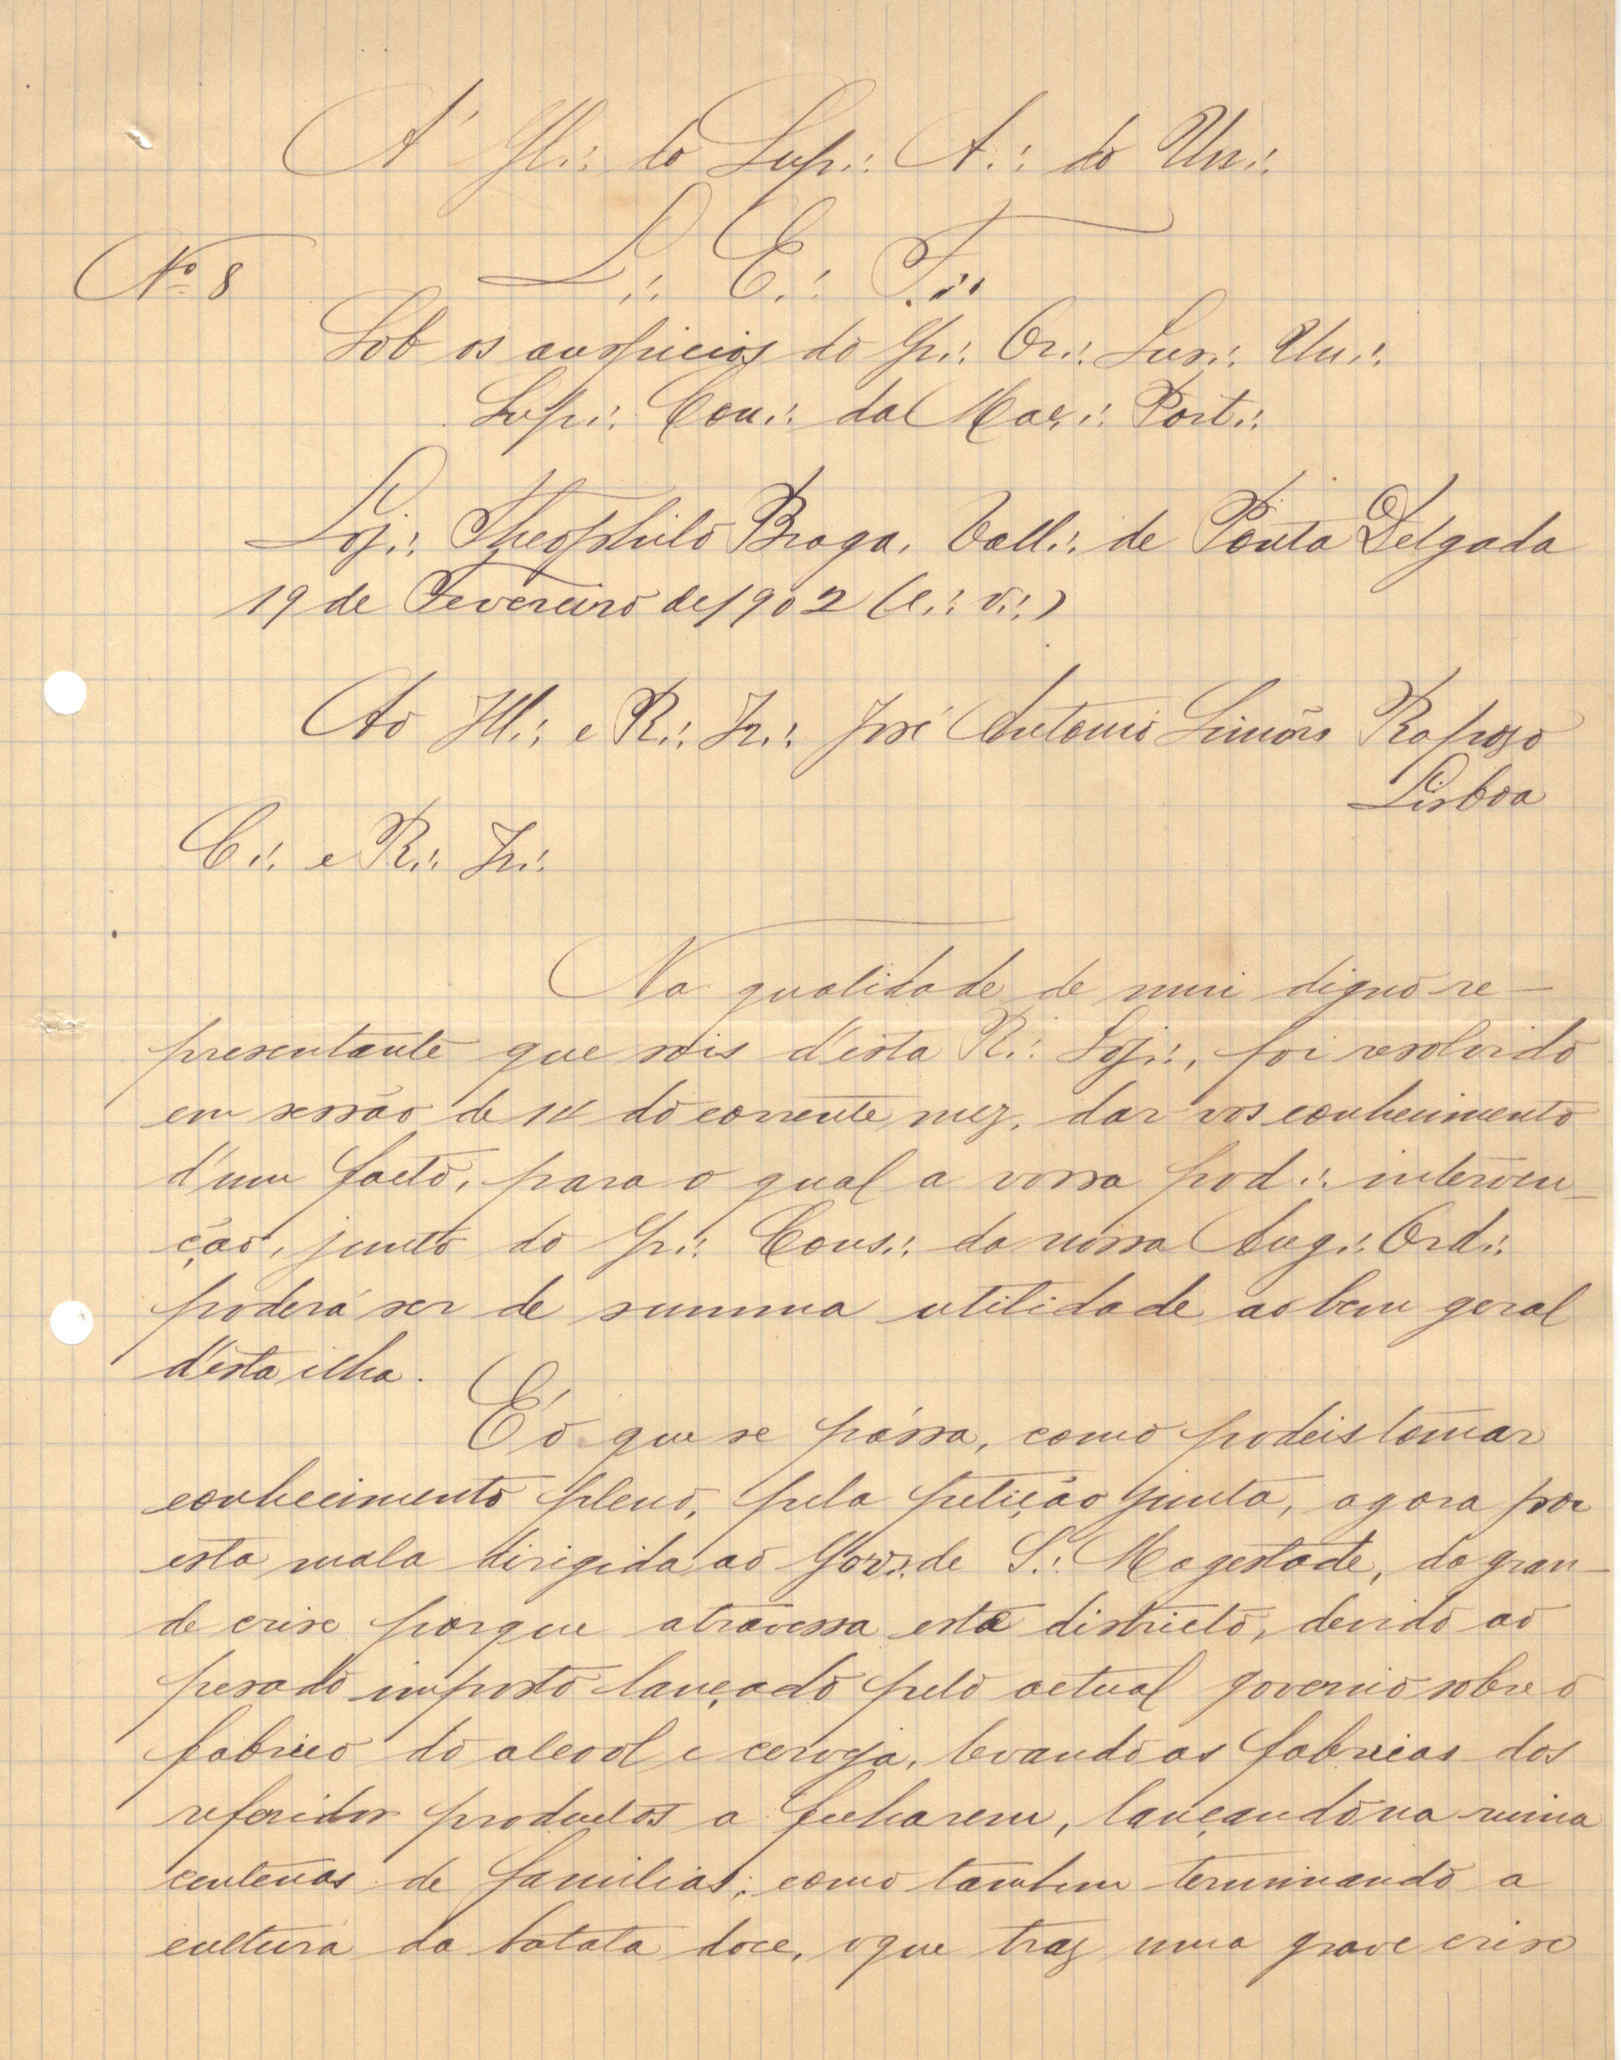 A' Gl∴ do Sup∴ A∴ do Un∴
L∴ E∴ F∴
Nº 8
Sob os auspicios do Gr∴ Or∴ Lus∴ Un∴
Sup∴ Con∴ da Maç∴ Port∴
Loj∴ Theophilo Braga, Vall∴ de Ponta Delgada
19 de Fevereiro de 1902 (e∴ v∴)
Ao Ill∴ e R∴ Ir∴ José Antonio Simões Raposo
Lisboa
C∴ e R∴ Ir∴
Na qualidade de mui digno re-
presentante que sois d'esta R∴ Loj∴, foi resolvido
em sessão de 14 do corrente mez, dar vos conhecimento
d'um facto, para o qual a vossa pod∴ interven-
ção, junto do Gr∴ Cons∴ da nossa Aug∴ Ord∴
poderá ser de summa utilidade ao bem geral
d'esta ilha.
É o que se pássa, como podeis tomar
conhecimento pleno, pela petição junta, agora por
esta mala dirigida ao Gov∴ de S∴ Magestade, da gran-
de crise porque atravessa este districto, devido ao
pesado imposto lançado pelo actual governo sobre o
fabrico do alcool e cerveja, levando as fabricas dos
referidos productos a fecharem, lançando na ruina
centenas de familias; como tambem terminando a
cultura da batata doce, o que traz uma grave crise